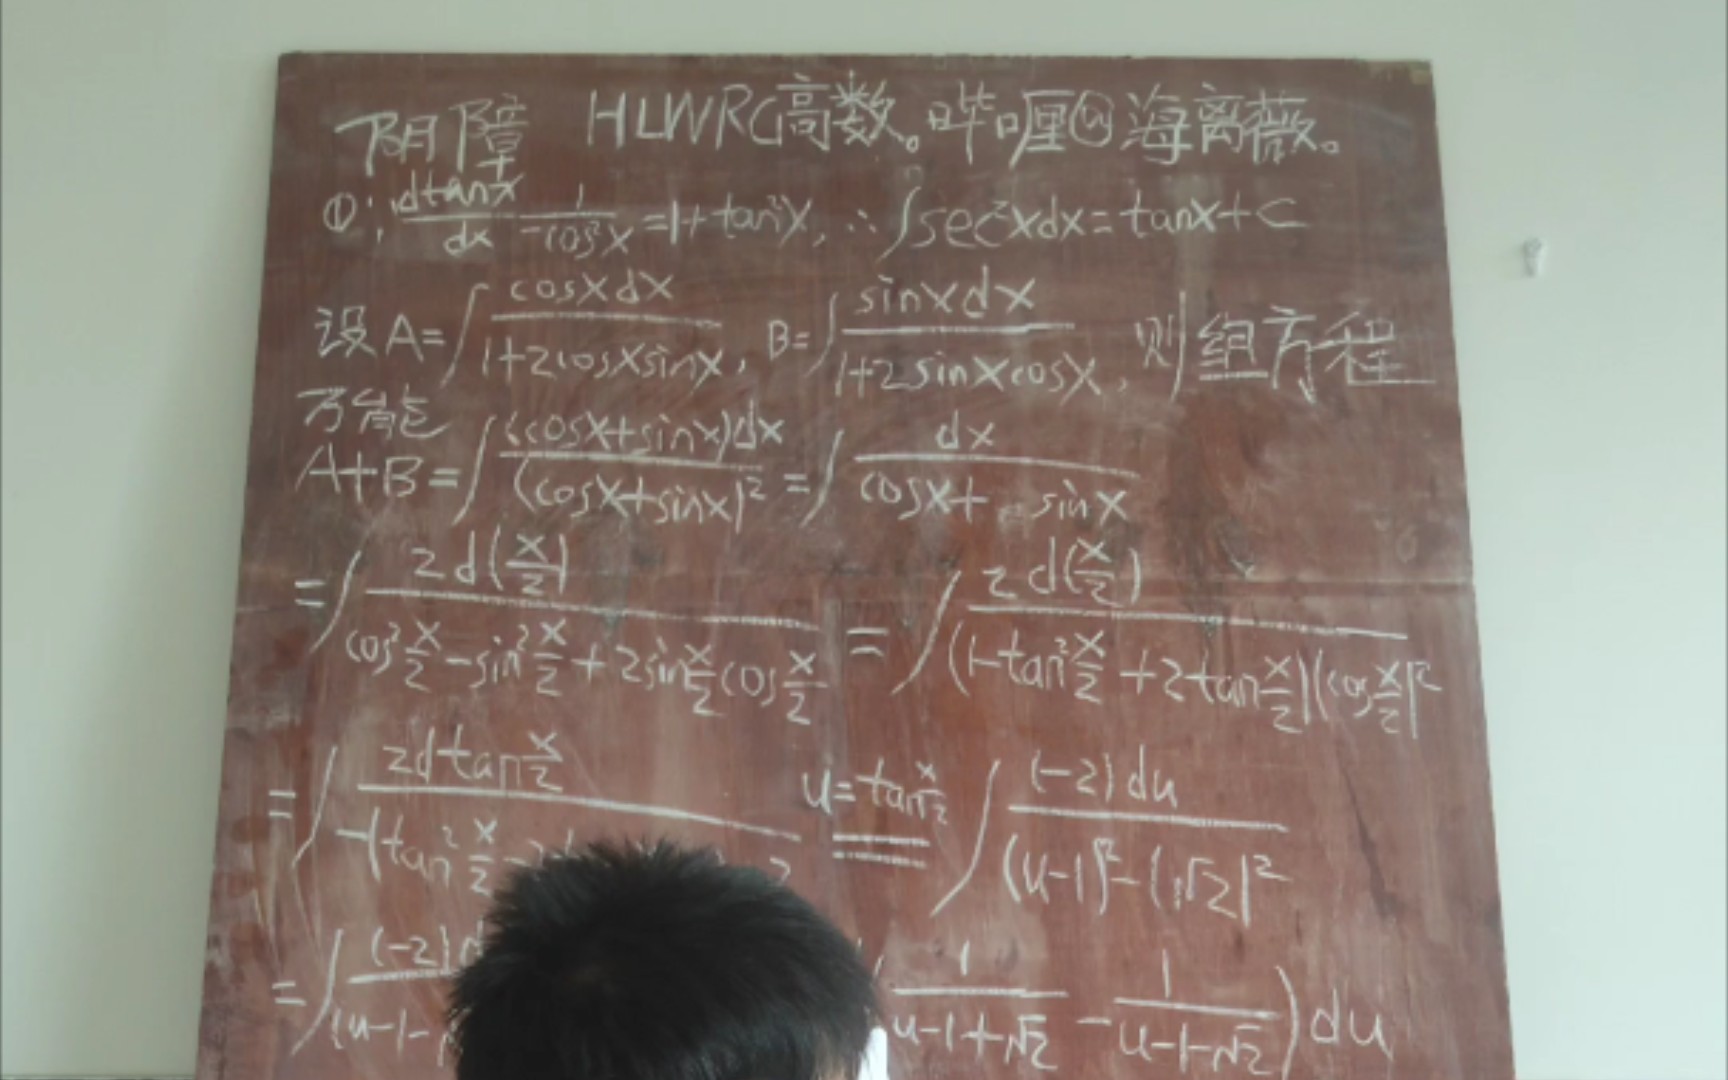 阴障 HLWRC高数。哔哩@海离薇。
①∵ dtanx/dx = 1/cos²x = 1+tan²x, ∴∫sec²xdx=tanx+C
设A=∫cosxdx/(1+2cosxsinx), B=∫sinxdx/(1+2sinxcosx), 则组方程
万能
A+B=∫(cosx+sinx)dx/(cosx+sinx)²=∫dx/(cosx+sinx)
=∫2d(x/2)/(cos²x/2-sin²x/2+2sinx/2cosx/2)=∫2d(x/2)/((1-tan²x/2+2tanx/2)(cosx/2)²)
=∫2dtanx/2/-(tan²x/2 u=tanx/2 ∫(-2)du/((u-1)²-(√2)²)
=∫(-2) (u-1- (1/(u-1+√2) - 1/(u-1-√2))du